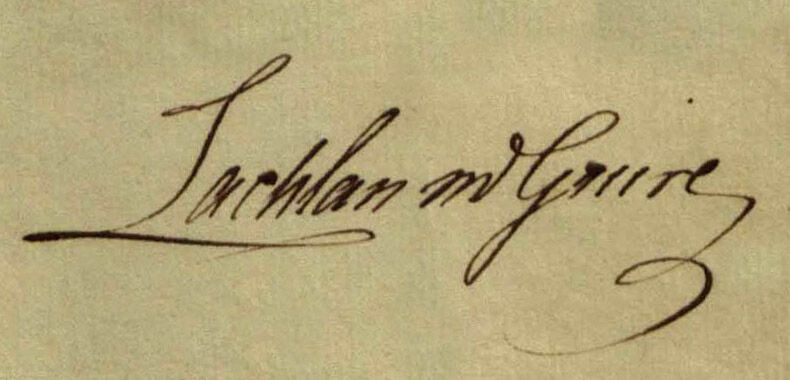 Lachlan McGuire